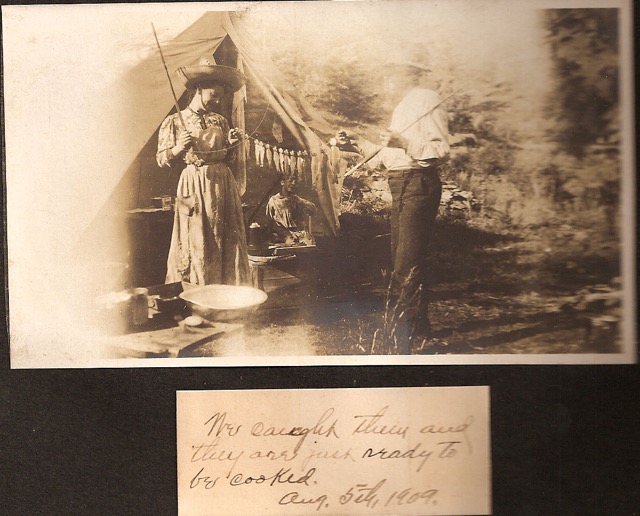 We caught them and
they are just ready to
be cooked.
Aug. 5th, 1909.